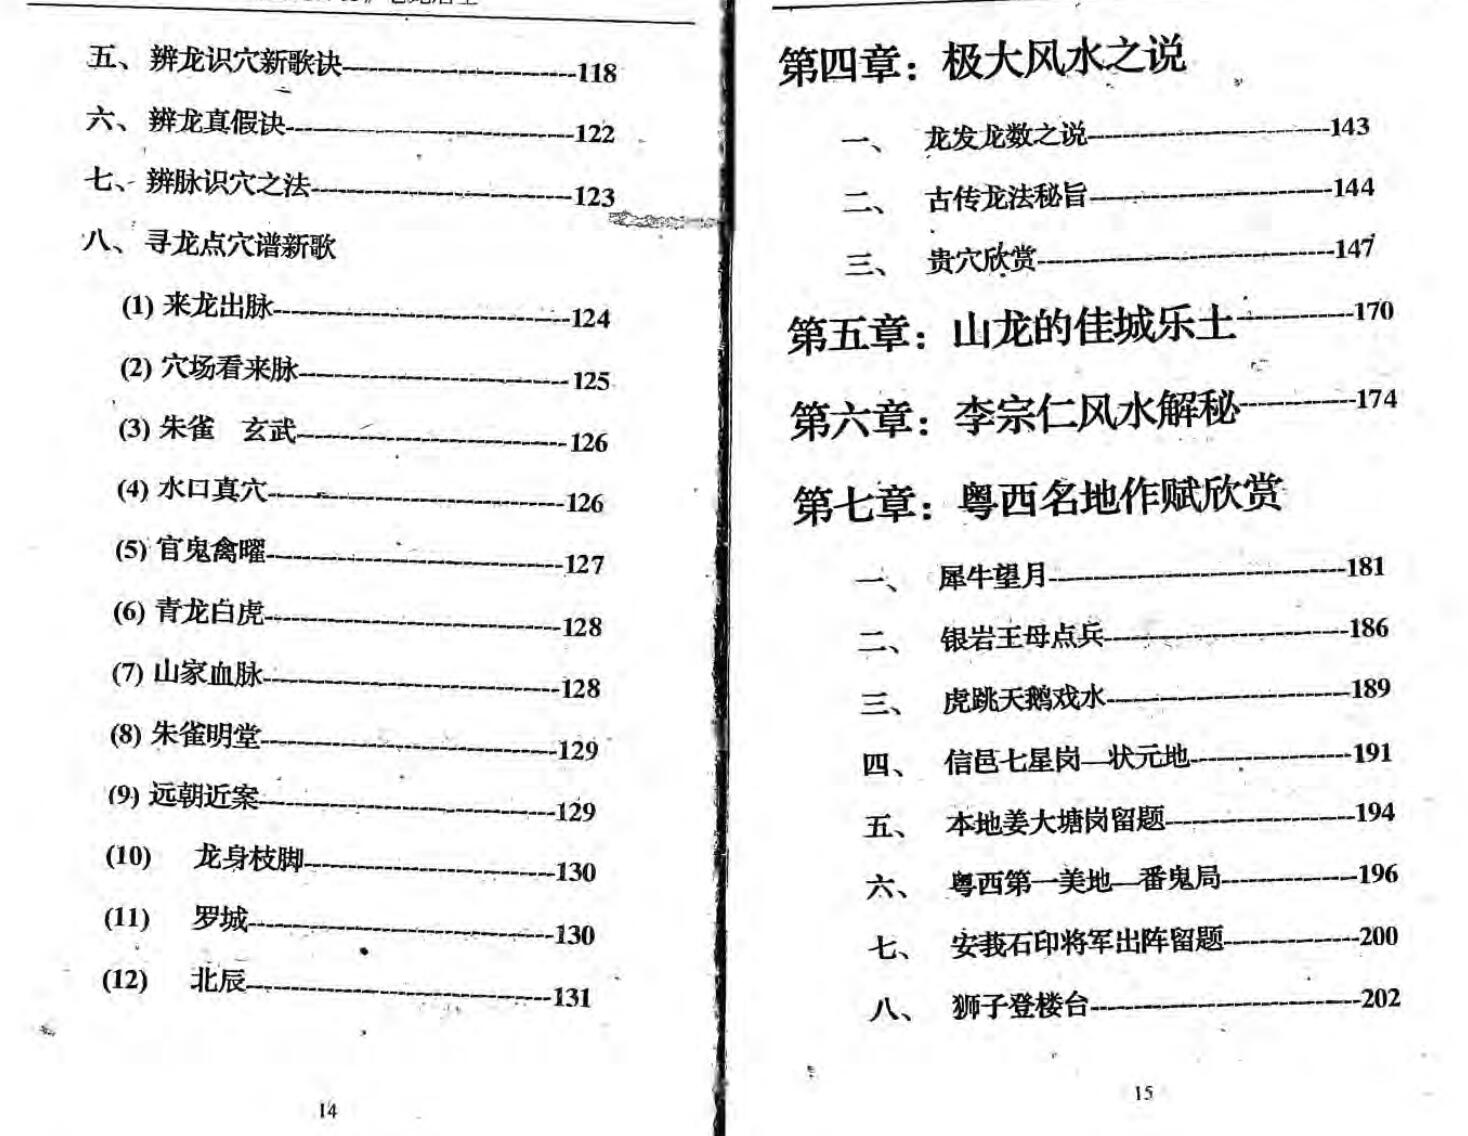 五、辨龙识穴新歌诀----------118
六、辨龙真假诀----------122
七、辨脉识穴之法----------123
八、寻龙点穴谱新歌
(1) 来龙出脉----------124
(2) 穴场看来脉----------125
(3) 朱雀 玄武----------126
(4) 水口真穴----------126
(5) 官鬼禽曜----------127
(6) 青龙白虎----------128
(7) 山家血脉----------128
(8) 朱雀明堂----------129
(9) 远朝近案----------129
(10) 龙身枝脚----------130
(11) 罗城----------130
(12) 北辰----------131
14
第四章：极大风水之说
一、 龙发龙数之说----------143
二、 古传龙法秘旨----------144
三、 贵穴欣赏----------147
第五章：山龙的佳城乐土----------170
第六章：李宗仁风水解秘----------174
第七章：粤西名地作赋欣赏
一、 犀牛望月----------181
二、 银岩王母点兵----------186
三、 虎跳天鹅戏水----------189
四、 信邑七星岗—状元地----------191
五、 本地姜大塘岗留题----------194
六、 粤西第一美地—番鬼局----------196
七、 安莪石印将军出阵留题----------200
八、 狮子登楼台----------202
15